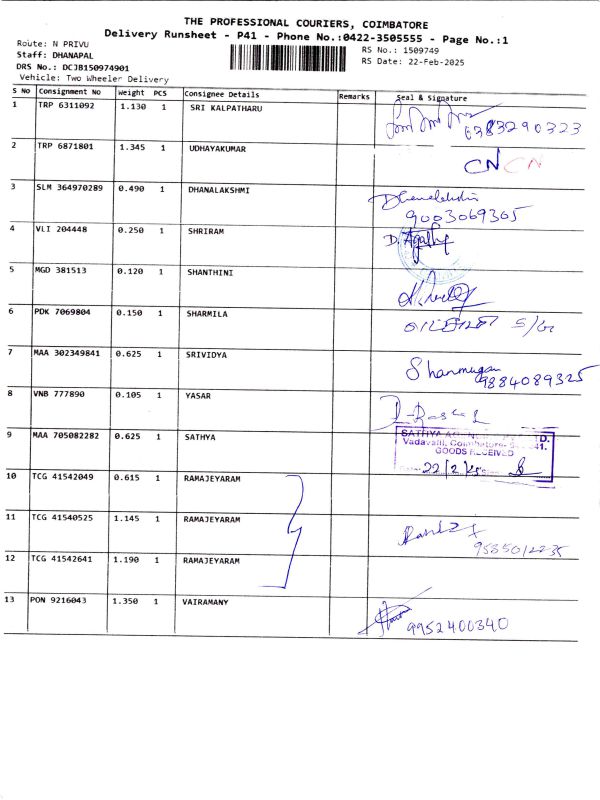 THE PROFESSIONAL COURIERS, COIMBATORE
Delivery Runsheet - P41 - Phone No.:0422-3505555 - Page No.:1
Route: N PRIVU
Staff: DHANAPAL
DRS No.: DCJB150974901
Vehicle: Two Wheeler Delivery
RS No.: 1509749
RS Date: 22-Feb-2025
S No Consignment No Weight PCS Consignee Details Remarks Seal & Signature
1 TRP 6311092 1.130 1 SRI KALPATHARU
6383290323
2 TRP 6871801 1.345 1 UDHAYAKUMAR
CN CN
3 SLM 364970289 0.490 1 DHANALAKSHMI
Dhanalakshmi
9003069365
4 VLI 204448 0.250 1 SHRIRAM
D. Agathy
5 MGD 381513 0.120 1 SHANTHINI
6 PDK 7069804 0.150 1 SHARMILA
7 MAA 302349841 0.625 1 SRIVIDYA
Shanmugan
9884089325
8 VNB 777890 0.105 1 YASAR
9 MAA 705082282 0.625 1 SATHYA
SATHYA
Vadavalli, Coimbatore- 41.
GOODS RECEIVED
22/2/25
10 TCG 41542049 0.615 1 RAMAJEYARAM
11 TCG 41540525 1.145 1 RAMAJEYARAM
12 TCG 41542641 1.190 1 RAMAJEYARAM
13 PON 9216043 1.350 1 VAIRAMANY
9952400340